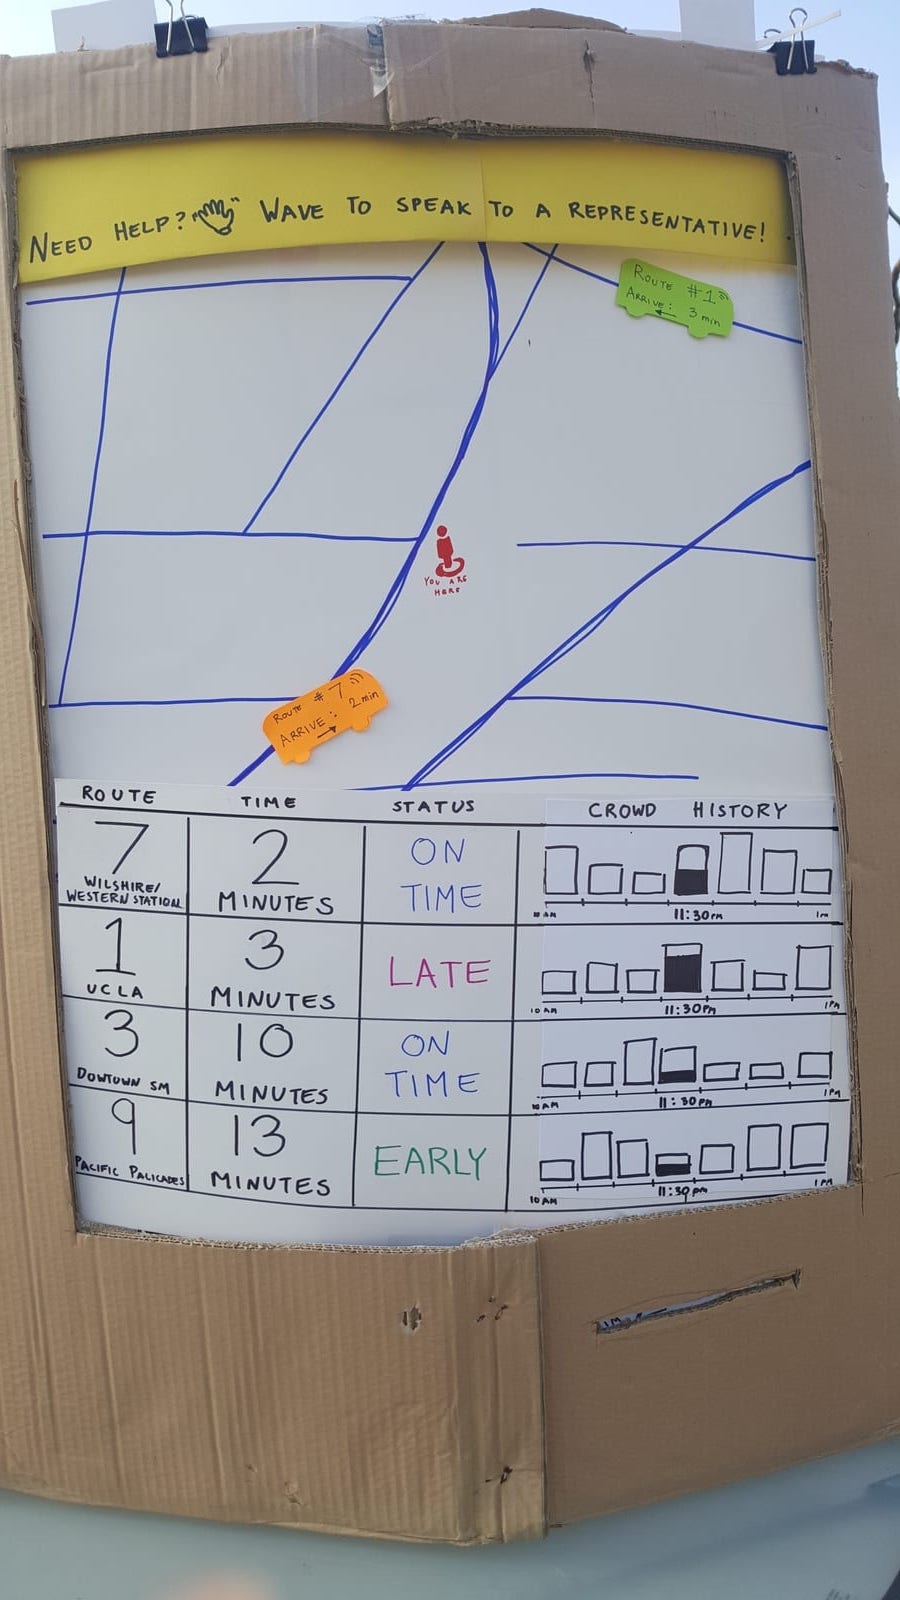 NEED HELP? WAVE TO SPEAK TO A REPRESENTATIVE!
ROUTE #1
ARRIVE: 3 min
YOU ARE
HERE
ROUTE #7
ARRIVE: 2 min
ROUTE TIME STATUS CROWD HISTORY
7 2 ON
WILSHIRE/
WESTERN STATION MINUTES TIME
10 AM 11:30PM 1PM
1 3 LATE
UCLA MINUTES
10 AM 11:30PM 1PM
3 10 ON
DOWTOWN SM MINUTES TIME
10 AM 11:30PM 1PM
9 13 EARLY
PACIFIC PALICADES MINUTES
10 AM 11:30pm 1PM